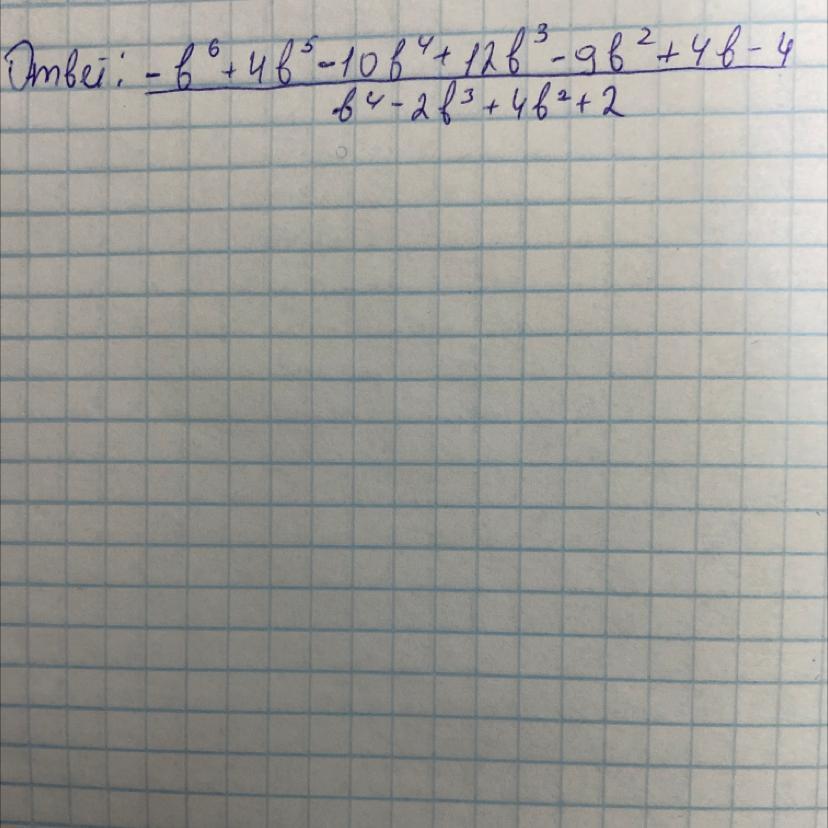 Ответ: -b⁶+4b⁵-10b⁴+12b³-9b²+4b-4
b⁴-2b³+4b²+2